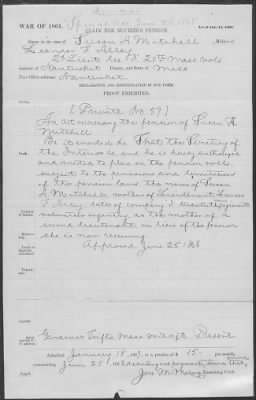 WAR OF 1861. Special Act June 25 1868 Act of July 14, 1862.
CLAIM FOR MOTHER'S PENSION.
Brief in the case of Susan A Mitchell, Mother of
Leander F Alley
2d Lieut Co I 20th Mass Vols
Resident of Nantucket County, and State of Mass
Post Office address: Nantucket
DECLARATION AND IDENTIFICATION IN DUE FORM.
PROOF EXHIBITED.
[Private No 59]
An act increasing the pension of Susan A
Mitchell
Be it enacted &c That the Secretary of
the Interior be, and he is hereby authorized
and directed to place on the pension rolls
subject to the provisions and limitations
of the pension laws, the name of Susan
A Mitchell, mother of Lieutenant Leander
F Alley, late of company I twentieth regiment
volunteers infantry, as the mother of a
second lieutenant, in lieu of the pension
she is now receiving
Approved June 25 1868
Service.
Death.
Mass Attys Present
Admitted January 18, to a pension of $ 15
commencing June 25,
Examining Clerk.